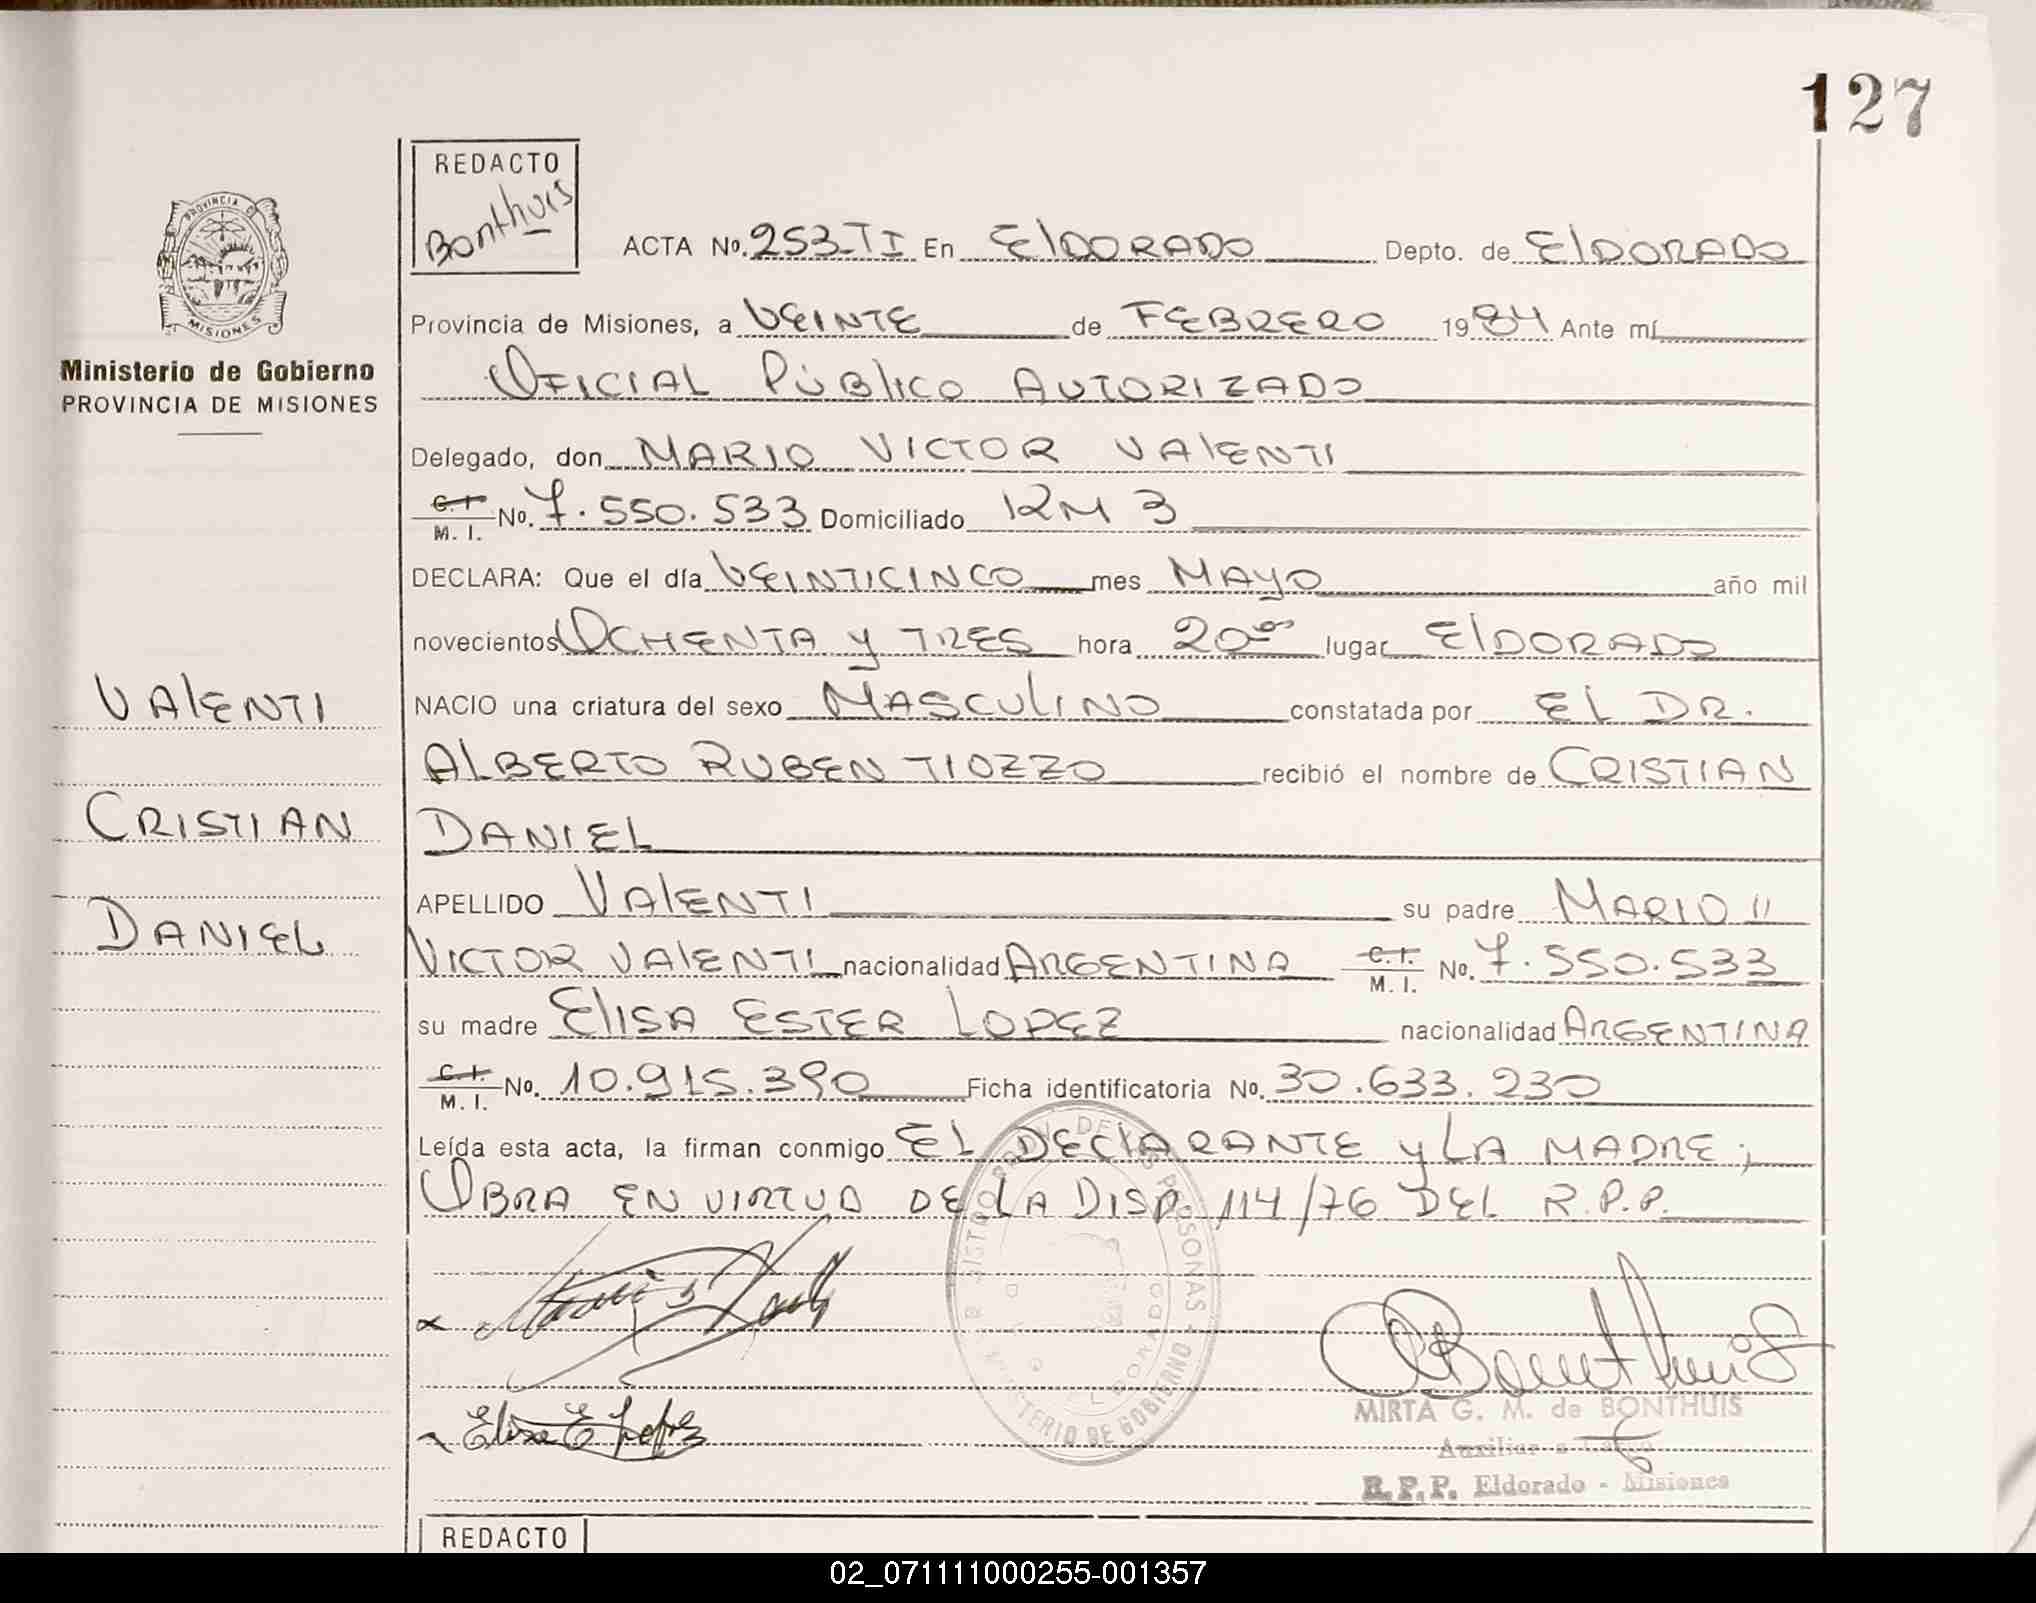 127
REDACTO
Bonthuis
ACTA No. 253-TI En ElDORADO Depto. de ElDORADO
PROVINCIA DE
MISIONES
Provincia de Misiones, a VEINTE de FEBRERO 1984 Ante mí
Ministerio de Gobierno
PROVINCIA DE MISIONES
OFICIAL PÚBlICO AUTORIZADO
Delegado, don MARIO VICTOR VAlENTI
C.I. M. I. No. 7.550.533 Domiciliado KM 3
DECLARA: Que el día VEINTICINCO mes MAYO año mil
novecientos OCHENTA y TRES hora 20 00 lugar ElDORADO
VAlENTI
NACIO una criatura del sexo MASCUlINO constatada por El DR.
ALBERTO RUBEN TIOZZO recibió el nombre de CRISTIAN
CRISTIAN
DANIEL
APELLIDO VAlENTI su padre MARIO "
DANIEL
VICTOR VAlENTI nacionalidad ARGENTINA C.I. M. I. No. 7.550.533
su madre ElISA ESTER LOPEZ nacionalidad ARGENTINA
C.I. M. I. No. 10.915.390 Ficha identificatoria No. 30.633.230
Leída esta acta, la firman conmigo EL DEClARANTE y LA MADRE;
OBRA EN VIRTUD DE LA DISP. 114/76 DEL R.P.P.
DE LAS PERSONAS
MINISTERIO DE GOBIERNO
ELDORADO
Elisa E Lopez
Bonthuis
MIRTA G. M. de BONTHUIS
Auxiliar
R.P.P. Eldorado - Misiones
REDACTO
02_071111000255-001357